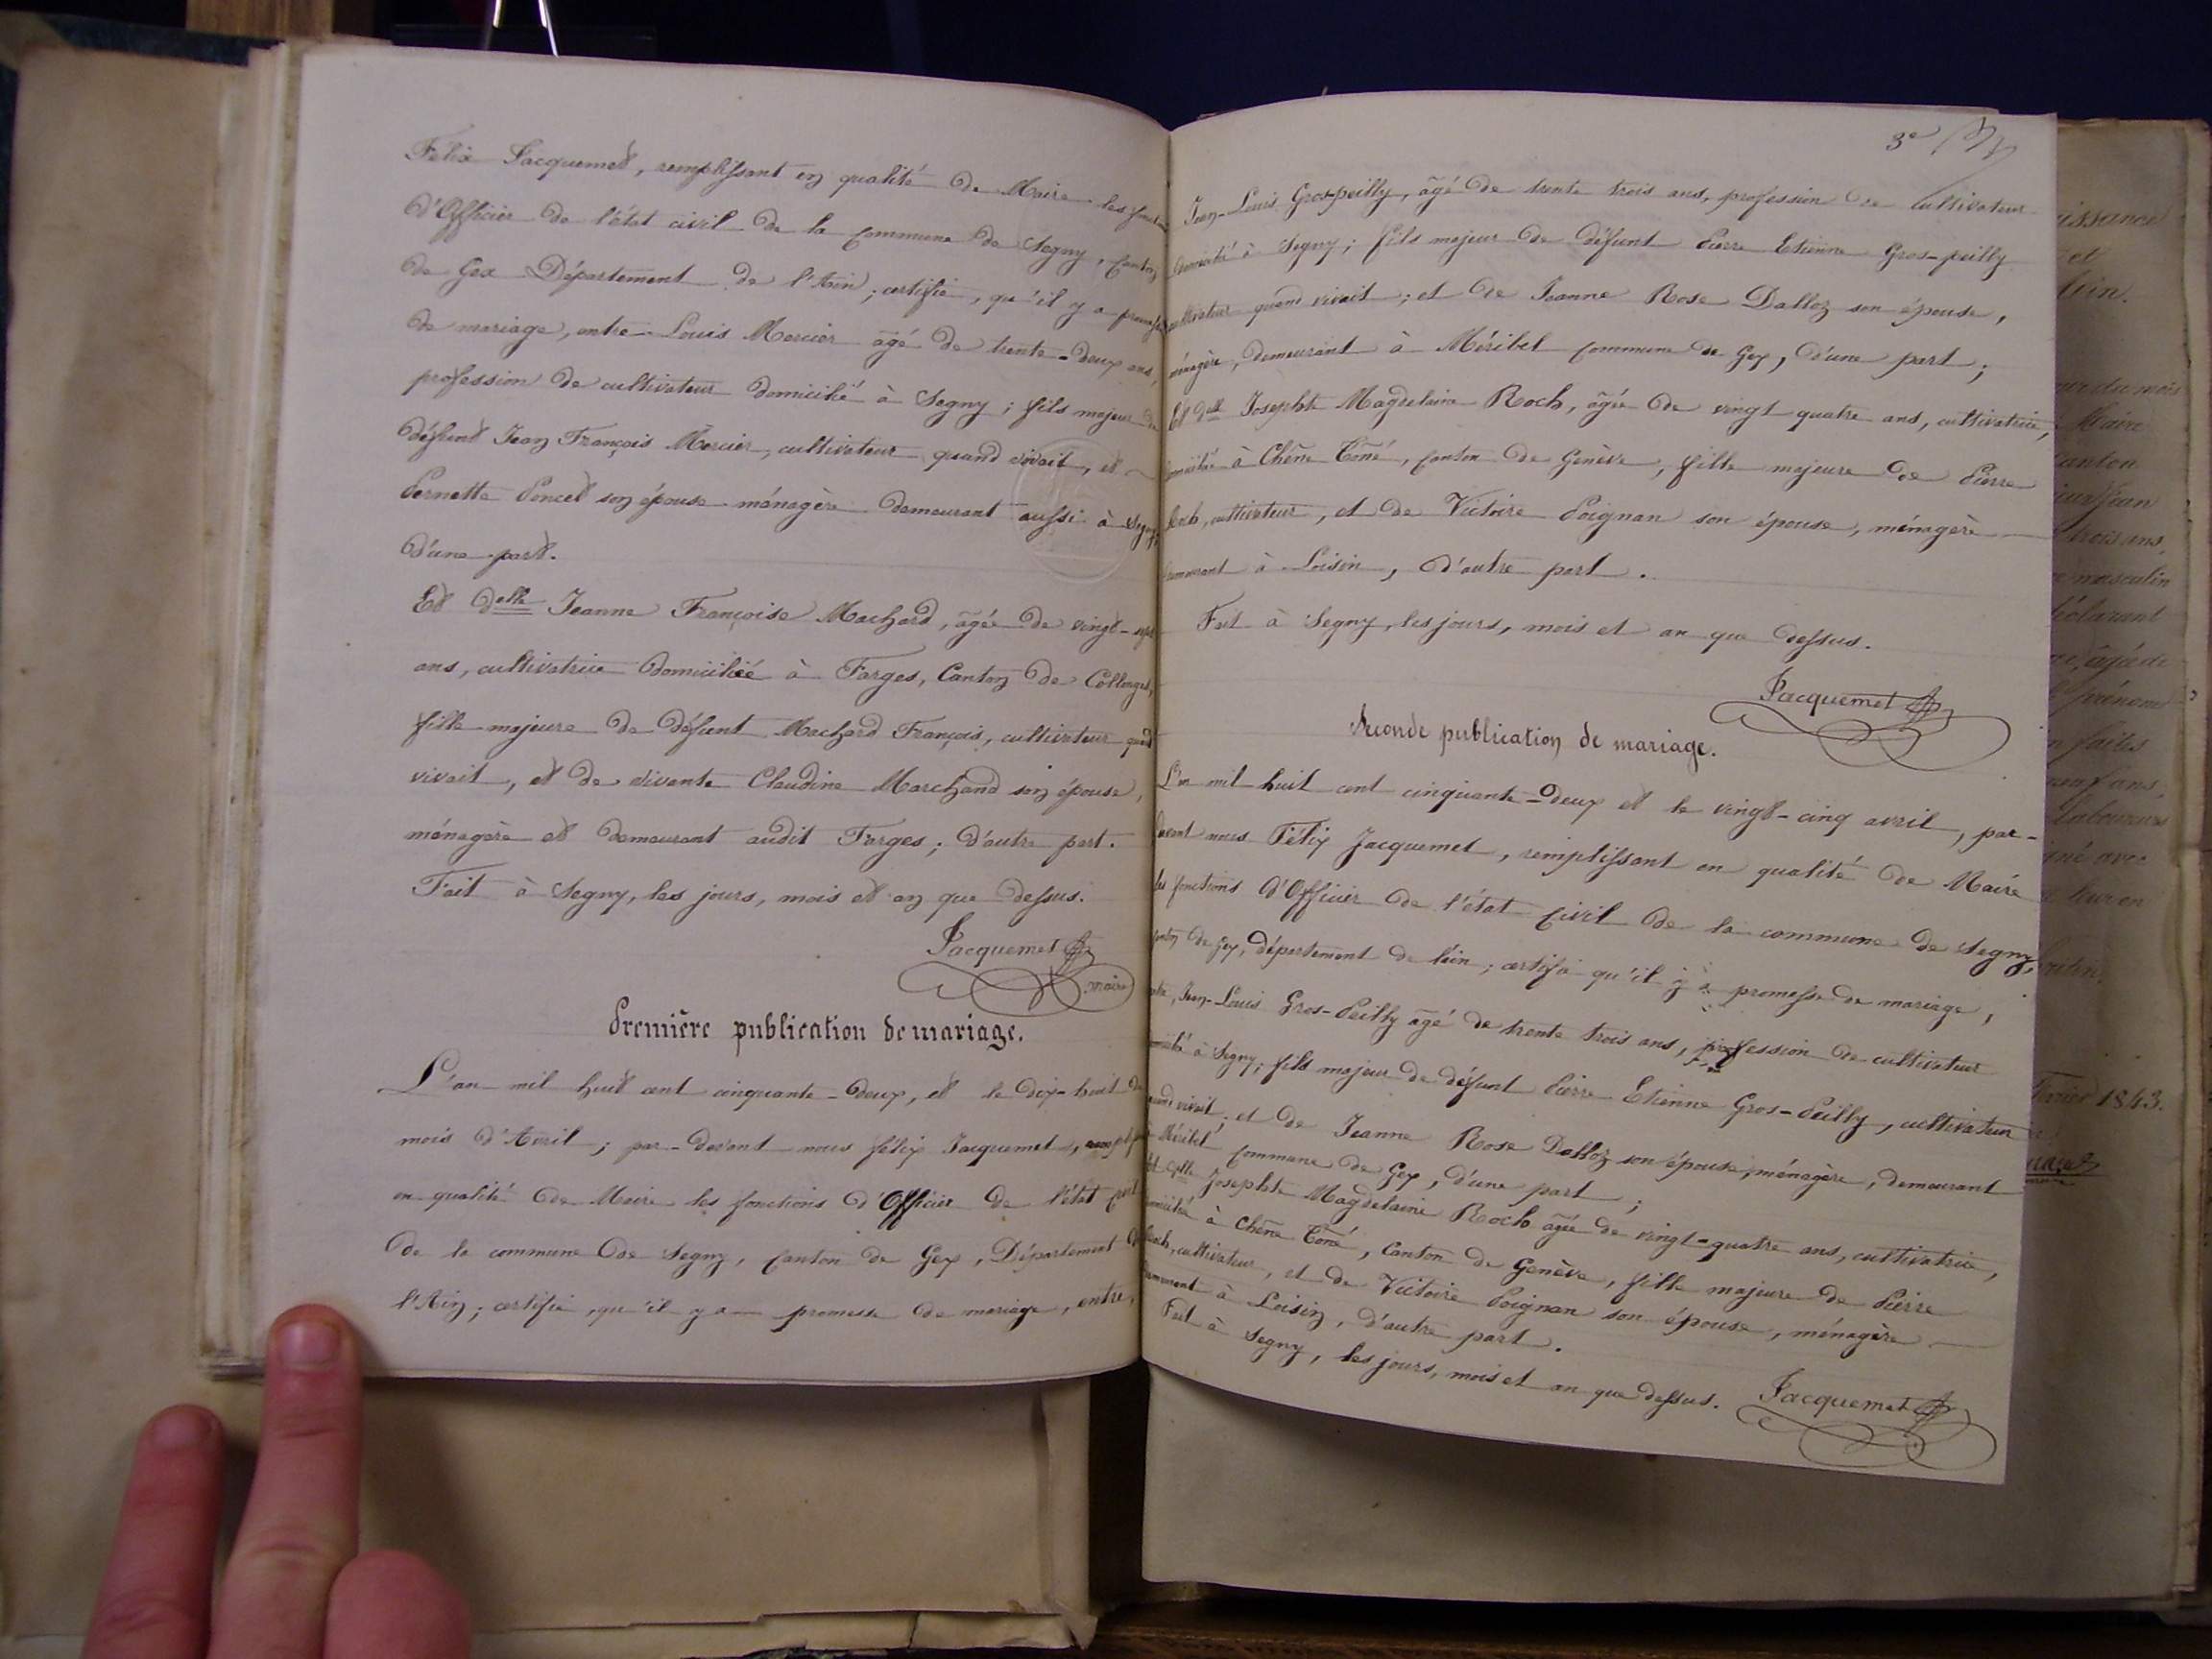 Félix Jacquemet, remplissant en qualité de Maire les
d'Officier de l'état civil de la commune de Segny, Canton
de Gex Département de l'Ain; certifie, qu'il y a promesse
de mariage, entre Louis Mercier âgé de trente-deux ans,
profession de cultivateur domicilié à Segny; fils majeur de
défunt Jean François Mercier, cultivateur quand vivait, et
Pernette Poncet son épouse ménagère demeurant aussi à Segny,
d'une part.
Et Delle Jeanne Françoise Machard, âgée de vingt-sept
ans, cultivatrice domiciliée à Farges, Canton de Collonges,
fille majeure de défunt Machard François, cultivateur quand
vivait, et de vivante Claudine Marchand son épouse,
ménagère et demeurant audit Farges; d'autre part.
Fait à Segny, les jours, mois et an que dessus.
Jacquemet
maire
Première publication de mariage.
L'an mil huit cent cinquante-deux, et le dix-huit du
mois d'Avril; par-devant nous félix Jacquemet,
en qualité de Maire les fonctions d'Officier de l'état civil
de la commune de Segny, canton de Gex, Département de
l'Ain; certifie, qu'il y a promesse de mariage, entre,
3e
Jean-Louis Gros-peilly, âgé de trente trois ans, profession de cultivateur
domicilié à Segny; fils majeur de défunt Pierre Etienne Gros-peilly
cultivateur quand vivait; et de Jeanne Rose Dalloz son épouse,
ménagère, demeurant à Méribel commune de Gex, d'une part;
Et delle Josephte Magdelaine Roch, âgée de vingt quatre ans, cultivatrice,
domiciliée à Chêne Toné, canton de Genève, fille majeure de Pierre
Roch, cultivateur, et de Victoire Poignan son épouse, ménagère
demeurant à Loisin, d'autre part.
Fait à Segny, les jours, mois et an que dessus.
Jacquemet
Seconde publication de mariage.
L'an mil huit cent cinquante-deux et le vingt-cinq avril, par-
devant nous Félix Jacquemet, remplissant en qualité de Maire
les fonctions d'Officier de l'état civil de la commune de Segny,
canton de Gex, département de l'ain; certifie qu'il y a promesse de mariage,
entre, Jean-Louis Gros-Peilly âgé de trente trois ans, profession de cultivateur
domicilié à Segny; fils majeur de défunt Pierre Etienne Gros-Peilly, cultivateur
quand vivait; et de Jeanne Rose Dalloz son épouse, ménagère, demeurant
à Méribel commune de Gex, d'une part;
Et delle Josephte Magdelaine Roch âgée de vingt-quatre ans, cultivatrice,
domiciliée à Chêne Toné, Canton de Genève, fille majeure de Pierre
Roch, cultivateur, et de Victoire Poignan son épouse, ménagère
demeurant à Loisin, d'autre part.
Fait à Segny, les jours, mois et an que dessus.
Jacquemet
et
Maire
Canton
trois ans,
masculin
prénom
faites
1843.